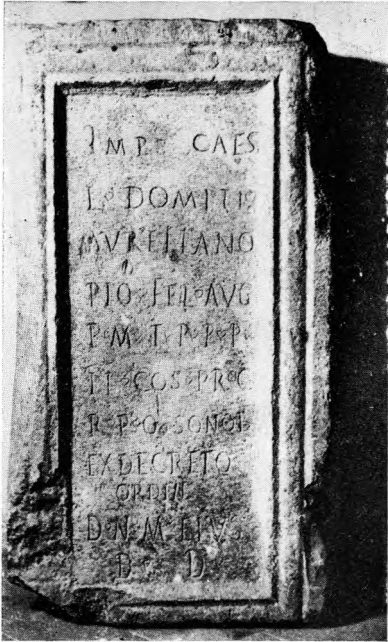 IMP CAES
L DOMITIO
AVRELIANO
PIO FEL AVG
P M T P P P
COS PR C
R P O SONOB
EX DECRETO
ORDIN
D N M EIVS
D